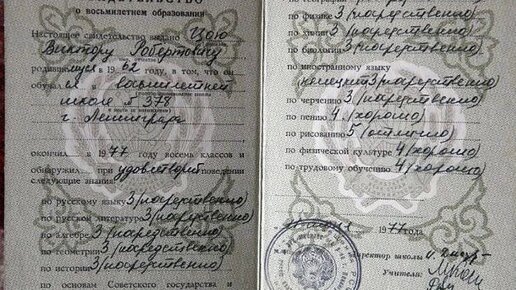 о восьмилетнем образовании
Настоящее свидетельство выдано Цою
Виктору Робертовичу
родившемуся в 1962 году, в том, что он
обучался в восьмилетней
школе № 378
г. Ленинграда
окончил в 1977 году восемь классов и
обнаружил при удовлетвор поведении
следующие знания:
по русскому языку 3 (посредственно)
по русской литературе 3 (посредственно)
по алгебре 3 (посредственно)
по геометрии 3 (посредственно)
по истории 3 (посредственно)
по основам Советского государства и
по физике 3 (посредственно)
по химии 3 (посредственно)
по биологии 3 (посредственно)
по иностранному языку
немецкий 3 (посредственно)
по черчению 3 (посредственно)
по пению 4 (хорошо)
по рисованию 5 (отлично)
по физической культуре 4 (хорошо)
по трудовому обучению 4 (хорошо)
1977 г.
директор школы
Учителя: